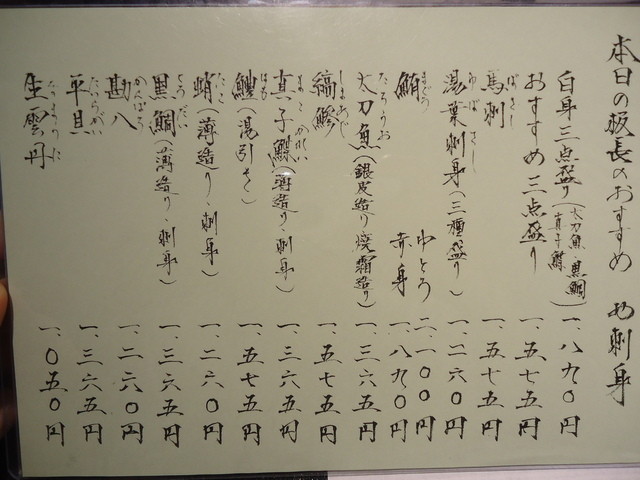 本日の板長のおすすめ お刺身
白身三点盛り(太刀魚・黒鯛 真子鰈) 一、八九〇円
おすすめ三点盛り 一、五七五円
馬刺 ばさし 一、五七五円
湯葉刺身(三種盛り) ゆばさし 一、二六〇円
鮪 まぐろ 中とろ 二、一〇〇円
赤身 一、八九〇円
太刀魚(銀皮造り・焼霜造り) たちうお 一、三六五円
縞鯵 しまあじ 一、五七五円
真子鰈(薄造り・刺身) まこかれい 一、三六五円
鱧(湯引き) はも 一、五七五円
蛸(薄造り・刺身) たこ 一、二六〇円
黒鯛(薄造り・刺身) くろだい 一、三六五円
勘八 かんぱち 一、二六〇円
平貝 たいらがい 一、三六五円
生雲丹 なまうに 一、〇五〇円